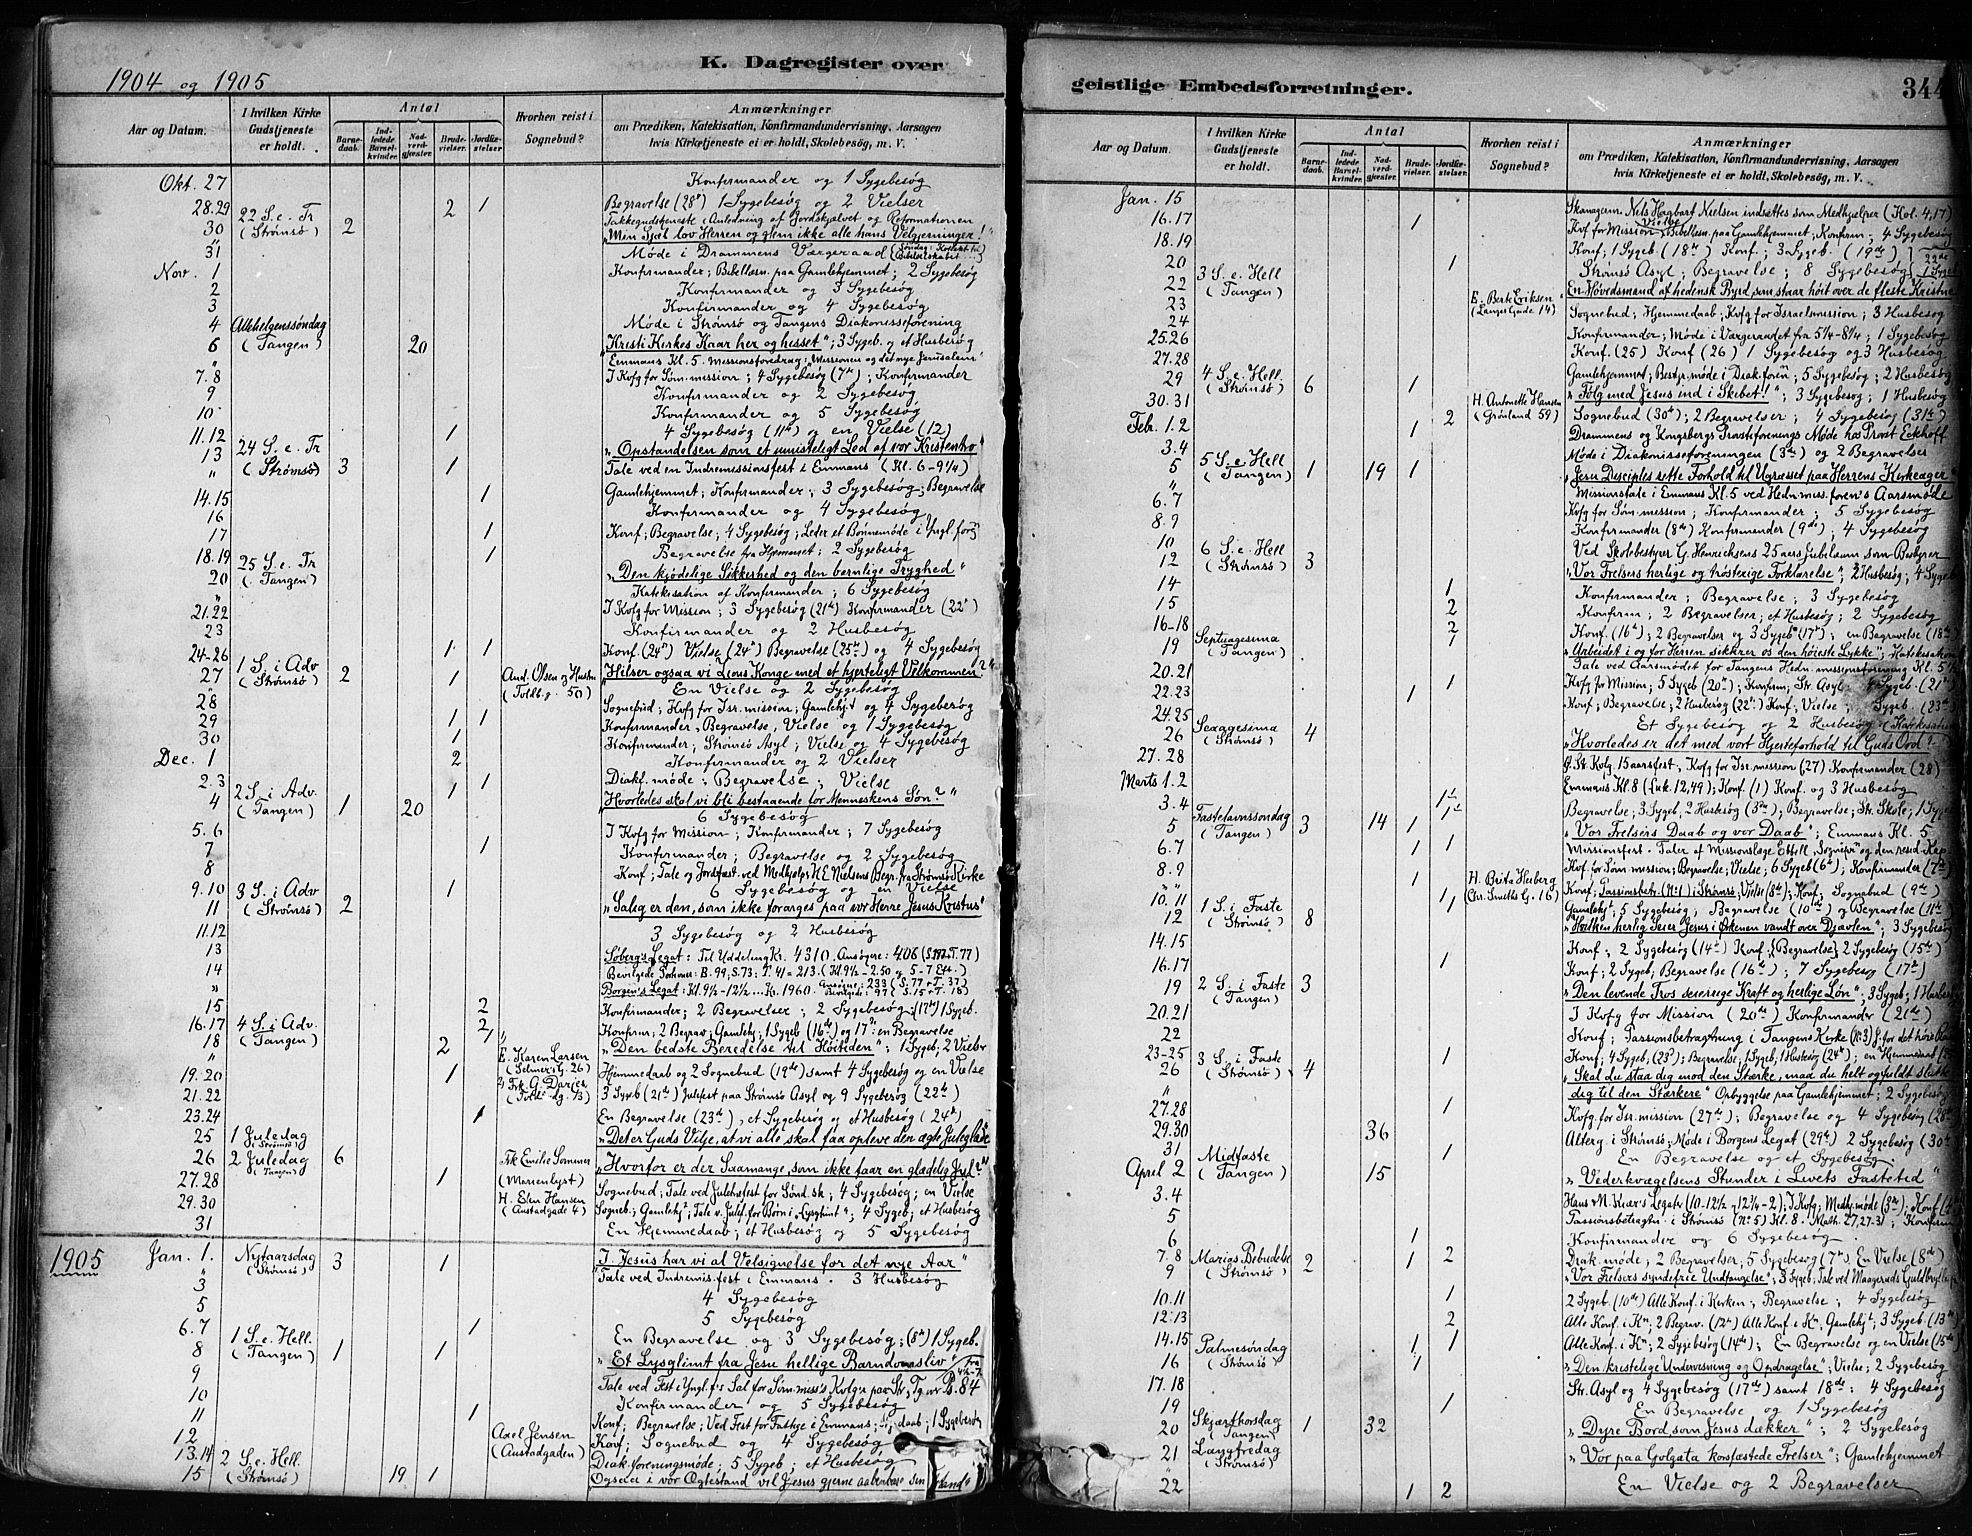 1904 og 1905
K. Dagregister over
Aar og Datum.
I hvilken Kirke Gudstjeneste er holdt.
Antal
Barnedaab.
Indledede Barselkvinder.
Nadverdgjæster.
Brudevielser.
Jordfæstelser
Hvorhen reist i Sognebud?
Anmærkninger
om Prædiken, Katekisation, Konfirmandundervisning, Aarsagen
hvis Kirketjeneste ei er holdt, Skolebesøg, m. V.
Okt. 27 Konfirmander og 1 Sygebesøg
28.29 2 1 Begravelse (28de) 1 Sygebesøg og 2 Vielser
30 22 S. e. Tr (Strømsø) 2 Takkegudstjeneste i Anledning af Jordskjælvet og Reformationen
"Min Sjæl lov Herren og glem ikke alle hans Velgjerninger!"
31 Møde i Drammens Værgeraad
Nov. 1 Konfirmander; Bibellæsn. paa Gamlehjemmet; 2 Sygebesøg
2 Konfirmander og 3 Sygebesøg
3 Konfirmander og 4 Sygebesøg
4 Møde i Strømsø og Tangens Diakonisseforening
6 Allehelgenssøndag (Tangen) 20 "Kristi Kirkes Kaar her og hisset"; 3 Sygeb. og et Husbesøg
" Emmaus Kl. 5. Missionsforedrag: "Missionen og det nye Jerusalem"
7.8 I Kvfg for Søm.mission; 4 Sygebesøg (7de); Konfirmander
9 Konfirmander og 2 Sygebesøg
10 Konfirmander og 5 Sygebesøg
11.12 1 4 Sygebesøg (11te) og en Vielse (12)
13 24 S. e. Tr (Strømsø) 3 1 "Opstandelsen som et umisteligt Led af vor Kristentro"
" Tale ved en Indremissionsfest i Emmaus (Kl. 6-9¼)
14.15 1 Gamlehjemmet; Konfirmander; 3 Sygebesøg; Begravelse
16 Konfirmander og 4 Sygebesøg
17 1 Konf; Begravelse; 4 Sygebesøg; Leder et Bønnemøde i Yngl.foren
18.19 1 Begravelse fra Hjemmet; 2 Sygebesøg
20 25 S. e. Tr (Tangen) "Den kjødelige Sikkerhed og den barnlige Tryghed"
" Katekisation af Konfirmander; 6 Sygebesøg
21.22 I Kvfg for Mission; 3 Sygebesøg (21de) Konfirmander (22de)
23 Konfirmander og 2 Husbesøg
24-26 1 1 Konf (24de) Vielse (24de) Begravelse (25de) og 4 Sygebesøg
27 1 S. i Adv (Strømsø) 2 1 And. Olsen og Hustru (Toldb.g. 50) "Hilser ogsaa vi Zions Konge med et hjerteligt Velkommen?"
" En Vielse og 2 Sygebesøg
28 Sognebud; Kvfg for Isr. mission; Gamlehjt og 4 Sygebesøg
29 1 1 Konfirmander, Begravelse, Vielse og 1 Sygebesøg
30 1 Konfirmander; Strømsø Asyl; Vielse og 4 Sygebesøg
Dec. 1 2 Konfirmander og 2 Vielser
2.3 1 1 Diakf. møde; Begravelse; Vielse
4 2 S. i Adv. (Tangen) 1 20 "Hvorledes skal vi bli bestaaende for Menneskens Søn?"
6 Sygebesøg
5.6 I Kvfg for Mission; Konfirmander; 7 Sygebesøg
7 1 Konfirmander; Begravelse og 2 Sygebesøg
8 Konf; Tale og Jordfæst. ved Medhjelp. H. E. Nielsens Begr. fra Strømsø Kirke
9.10 1 6 Sygebesøg og en Vielse
11 3 S. i Adv (Strømsø) 2 "Salig er den, som ikke forarges paa vor Herre Jesus Kristus"
11.12 3 Sygebesøg og 2 Husbesøg
13 Søberg's Legat: Til Uddeling Kr. 4310. Ansøgere: 406
14 Bevilgede Portioner: B. 99, S. 73; T. 41 = 213. (Kl. 9½-2.50 og 5-7 Eft.)
" Borgen's Legat: Kl. 9½-12½... Kr. 1960. Ansøgere: 233 (S. 77 + T. 37) Bevilgede: 97 (S. 15 + T. 18)
15 2 Konfirmander; 2 Begravelser; 2 Sygebesøg (17de) 1 Sygeb.
16.17 2 Konfirm; 2 Begrav; Gamlehj; 1 Sygeb (16de) og 17de: en Begravelse
18 4 S. i Adv. (Tangen) 2 1 "Den bedste Beredelse til Høitiden"; 1 Sygeb, 2 Vielser
" E. Karen Larsen (Selmers G. 26)
19.20 1 Hjemmedaab og 2 Sognebud (19de) samt 4 Sygebesøg og en Vielse
21.22 3 Sygeb (21de) Julefest paa Strømsø Asyl og 9 Sygebesøg (22de)
23.24 1 En Begravelse (23de), et Sygebesøg og et Husbesøg (24de)
25 1 Juledag (Strømsø) "Det er Guds Vilje, at vi alle skal faa opleve den ægte Juleglæde"
26 2 Juledag (Tangen) 6 Frk Emilie Sommer (Marienlyst) "Hvorfor er der saa mange, som ikke faar en glædelig Jul?"
27.28 1 Sognebud; Tale ved Juletræfest for Sønd.sk; 4 Sygebesøg; en Vielse
29.30 H. Elen Hansen (Austadgade 4) Sogneb.; Gamlehjt; Tale v. Julef. for Børn i "Lysglimt"; 4 Sygeb; et Husbesøg
31 En Hjemmedaab; et Husbesøg og 5 Sygebesøg
1905 Jan. 1. Nytaarsdag (Strømsø) 3 1 "I Jesus har vi al Velsignelse for det nye Aar"
" Tale ved Indremis.fest i Emmaus. 3 Husbesøg
3 4 Sygebesøg
5 5 Sygebesøg
6.7 1 En Begravelse og 3 Sygebesøg; (8de) 1 Sygeb.
8 1 S. e. Hell. (Tangen) 1 1 "Et Lysglimt fra Jesu hellige Barndomsliv"
9 Tale ved Fest i Yngl.f's Sal for Søm.miss's Kvfg'r paa Str. Tg.
10 Konfirmander og 5 Sygebesøg
11 1 Konf; Begravelse; Ved Fest for Fattige i Emmaus; Hj. daab; 1 Sygebesøg
12 Axel Jensen (Austadgaden) Konf; Sognebud og 4 Sygebesøg
13.14 Diak.foreningsmøde; 5 Sygeb; et Husbesøg
15 2 S. e. Hell. (Strømsø) 19 1 Ogsaa i vor Ægtestand vil Jesus gjerne aabenbare den
geistlige Embedsforretninger.
344
Aar og Datum.
I hvilken Kirke Gudstjeneste er holdt.
Antal
Barnedaab.
Indledede Barselkvinder.
Nadverdgjæster.
Brudevielser.
Jordfæstelser.
Hvorhen reist i Sognebud?
Anmærkninger
om Prædiken, Katekisation, Konfirmandundervisning, Aarsagen
hvis Kirketjeneste ei er holdt, Skolebesøg, m. V.
Jan. 15 Skanagem. Nils Hagbart Nielsen indsættes som Medhjælper (Kol. 4,17)
16.17 1 Kvf for Mission; Bibellæsn. paa Gamlehjemmet; Konfirm; 4 Sygebesøg
18.19 Konf; 1 Sygeb (18de) Konf; 3 Sygeb. (19de)
20 1 Strømsø Asyl; Begravelse; 8 Sygebesøg
22 3 S. e. Hell (Tangen) En Høvedsmand af hedensk Byrd, som staar høit over de fleste Kristne
23 E. Berte Eriksen (Langes Gade 14) Sognebud; Hjemmedaab; Kvfg for Israelsmission; 3 Husbesøg
24 Konfirmander; Møde i Værgeraadet fra 5¼-8¼; 1 Sygebesøg
25.26 Konf. (25) Konf (26) 1 Sygebesøg og 3 Husbesøg
27.28 Gamlehjemmet; Bestyr.møde i Diak.foren; 5 Sygebesøg; 2 Husbesøg
29 4 S. e. Hell. (Strømsø) 6 1 "Følg med Jesus ind i Skibet!"; 3 Sygebesøg; 1 Husbesøg
30.31 2 H. Antonette Hansen (Grønland 59) Sognebud (30te); 2 Begravelser; 4 Sygebesøg (31te)
Feb. 1.2 1 Drammens og Kongsbergs Præsteforenings Møde hos Provst Eckhoff
3.4 Møde i Diakonisseforeningen (3de) og 2 Begravelser
5 5 S. e. Hell (Tangen) 1 19 1 "Jesu Disciples rette Forhold til Ugræsset paa Herrens Kirkeager"
" Missionstale i Emmaus Kl. 5 ved Hedn.miss.foren's Aarsmøde
6.7 Kvfg for Søm.mission; Konfirmander; 5 Sygebesøg
8.9 Konfirmander (8de) Konfirmander (9de); 4 Sygebesøg
10 Ved Skolebestyrer G. Henrichsens 25 aars Jubilæum som Bestyrer
12 6 S. e. Hell (Strømsø) 3 "Vor Frelsers herlige og trøsterige Forklarelse"; 2 Husbesøg; 4 Sygeb
14 1 Konfirmander; Begravelse; 3 Sygebesøg
15 2 Konfirm; 2 Begravelser; et Husbesøg; 2 Sygebesøg
16-18 2 1 Konf. (16de); 2 Begravelser og 3 Sygeb (17de); en Begravelse (18de)
19 Septuagesima (Tangen) "Arbeidet i og for Herren sikkrer os den høieste Lykke"; Katekisation
Tale ved Aarsmødet for Tangens Hedn.missionsforening Kl. 5½
20.21 Kvfg for Mission; 5 Sygeb (20de); Konfirm; Str. Asyl, 4 Sygeb. (21de)
22.23 1 1 Konf; Begravelse; 2 Husbesøg (22de) Konf, Vielse; Sygeb (23de)
24.25 Et Sygebesøg og 2 Husbesøg (Katekisation)
26 Sexagesima (Strømsø) 4 "Hvorledes er det med vort Hjerteforhold til Guds Ord?"
27.28 15 aarsfest; Kvfg for Isr.mission (27) Konfirmander (28)
Marts 1.2 Emmaus Kl. 8 (Luk. 12,49); Konf. (1) Konf. og 3 Husbesøg
3.4 Begravelse; 3 Sygeb, 2 Husbesøg (3de); Begravelse; Str. Skole; 1 Sygeb
5 Fastelavnssøndag (Tangen) 3 14 1 "Vor Frelsers Daab og vor Daab"; Emmaus Kl. 5
6.7 1 1 Kvf. for Søm.mission; Begravelse; Vielse; 6 Sygeb (6te); Konfirmander (7de)
8.9 1 H. Brita Hesberg (Chr. Smiths G. 16) Konf, Passionsbetr. (No 1) i Strømsø; Vielse (8de); Konf; Sognebud (9de)
10.11 1 1 Gamlehjt; 5 Sygebesøg; Begravelse (10de) og Begravelse (11te)
12 1 S. i Faste (Strømsø) 8 "Hvilken herlig Seier Jesus i Ørkenen vandt over Djævlen"; 3 Sygebesøg
14.15 Konf; 2 Sygebesøg (14de) Konf; Begravelse; 2 Sygebesøg (15de)
16.17 1 Konf; 2 Sygeb; Begravelse (16de); 7 Sygebesøg (17de)
19 2 S. i Faste (Tangen) 3 "Den levende Tros seierrige Kraft og herlige Løn"; 3 Sygeb; 1 Husbesøg
20.21 I Kvfg for Mission (20de) Konfirmander (21de)
22 Konf; Passionsbetragtning i Tangens Kirke (No 3)
23-25 1 Konf; 4 Sygeb, (23de); Begravelse; 1 Sygeb, 1 Husbesøg (24de); en Hjemmedaab
26 3 S. i Faste (Strømsø) 4 "Skal du staa dig mod den Stærke, maa du helt og fuldt slutte
" dig til den Stærkere" Opbyggelse paa Gamlehjemmet; 2 Sygebesøg
27.28 1 Kvfg for Isr.mission (27de); Begravelse og 4 Sygebesøg (28de)
29.30 36 Alterg. i Strømsø; Møde i Borgens Legat (29de) 2 Sygebesøg (30te)
31 1 En Begravelse og et Sygebesøg.
April 2 Midfaste (Tangen) 15 "Vederkvægelsens Stunder i Livets Fastetid"
3.4 Hans & M. Kiær's Legater (10-12½ - 12¾-2); I Kvfg; Medhj.møde (3de); Konf (4de)
5 Passionsbetragtn. i Strømsø (No 5) Kl. 8. Math. 27,27-31; Konfirm
6 1 Konfirmander og 6 Sygebesøg.
7.8 1 2 Diak.møde; 2 Begravelser; 5 Sygebesøg (7de). En Vielse (8de)
9 Mariæ Bebudelse (Strømsø) 2 "Vor Frelsers syndefrie Undfangelse"; 3 Sygeb; Tale ved Maagseruds Guldbryllup
10.11 1 2 Sygeb. (10de) Alle Konf. i Kirken; Begravelse; 4 Sygebesøg
12.13 2 Alle Konf. i Kn; 2 Begrav. (12te) Alle Konf. i Kn; Gamlehjt; 3 Sygeb. (13de)
14.15 1 1 Alle Konf. i Kn; 2 Sygebesøg (14de); En Begravelse og en Vielse (15de)
16 Palmesøndag (Strømsø) 1 "Den kristelige Undervisning og Opdragelse"; Vielse; 2 Sygebesøg
17.18 Str. Asyl og 4 Sygebesøg (17de) samt 18de: 4 Sygebesøg
19 1 En Begravelse og 1 Sygebesøg
20 Skjærthorsdag (Tangen) 1 32 "Dyre Bord, som Jesus dækker"; 2 Sygebesøg
21 Langfredag (Strømsø) "Vor paa Golgata korsfæstede Frelser"; Gamlehjemmet
22 1 2 En Vielse og 2 Begravelser